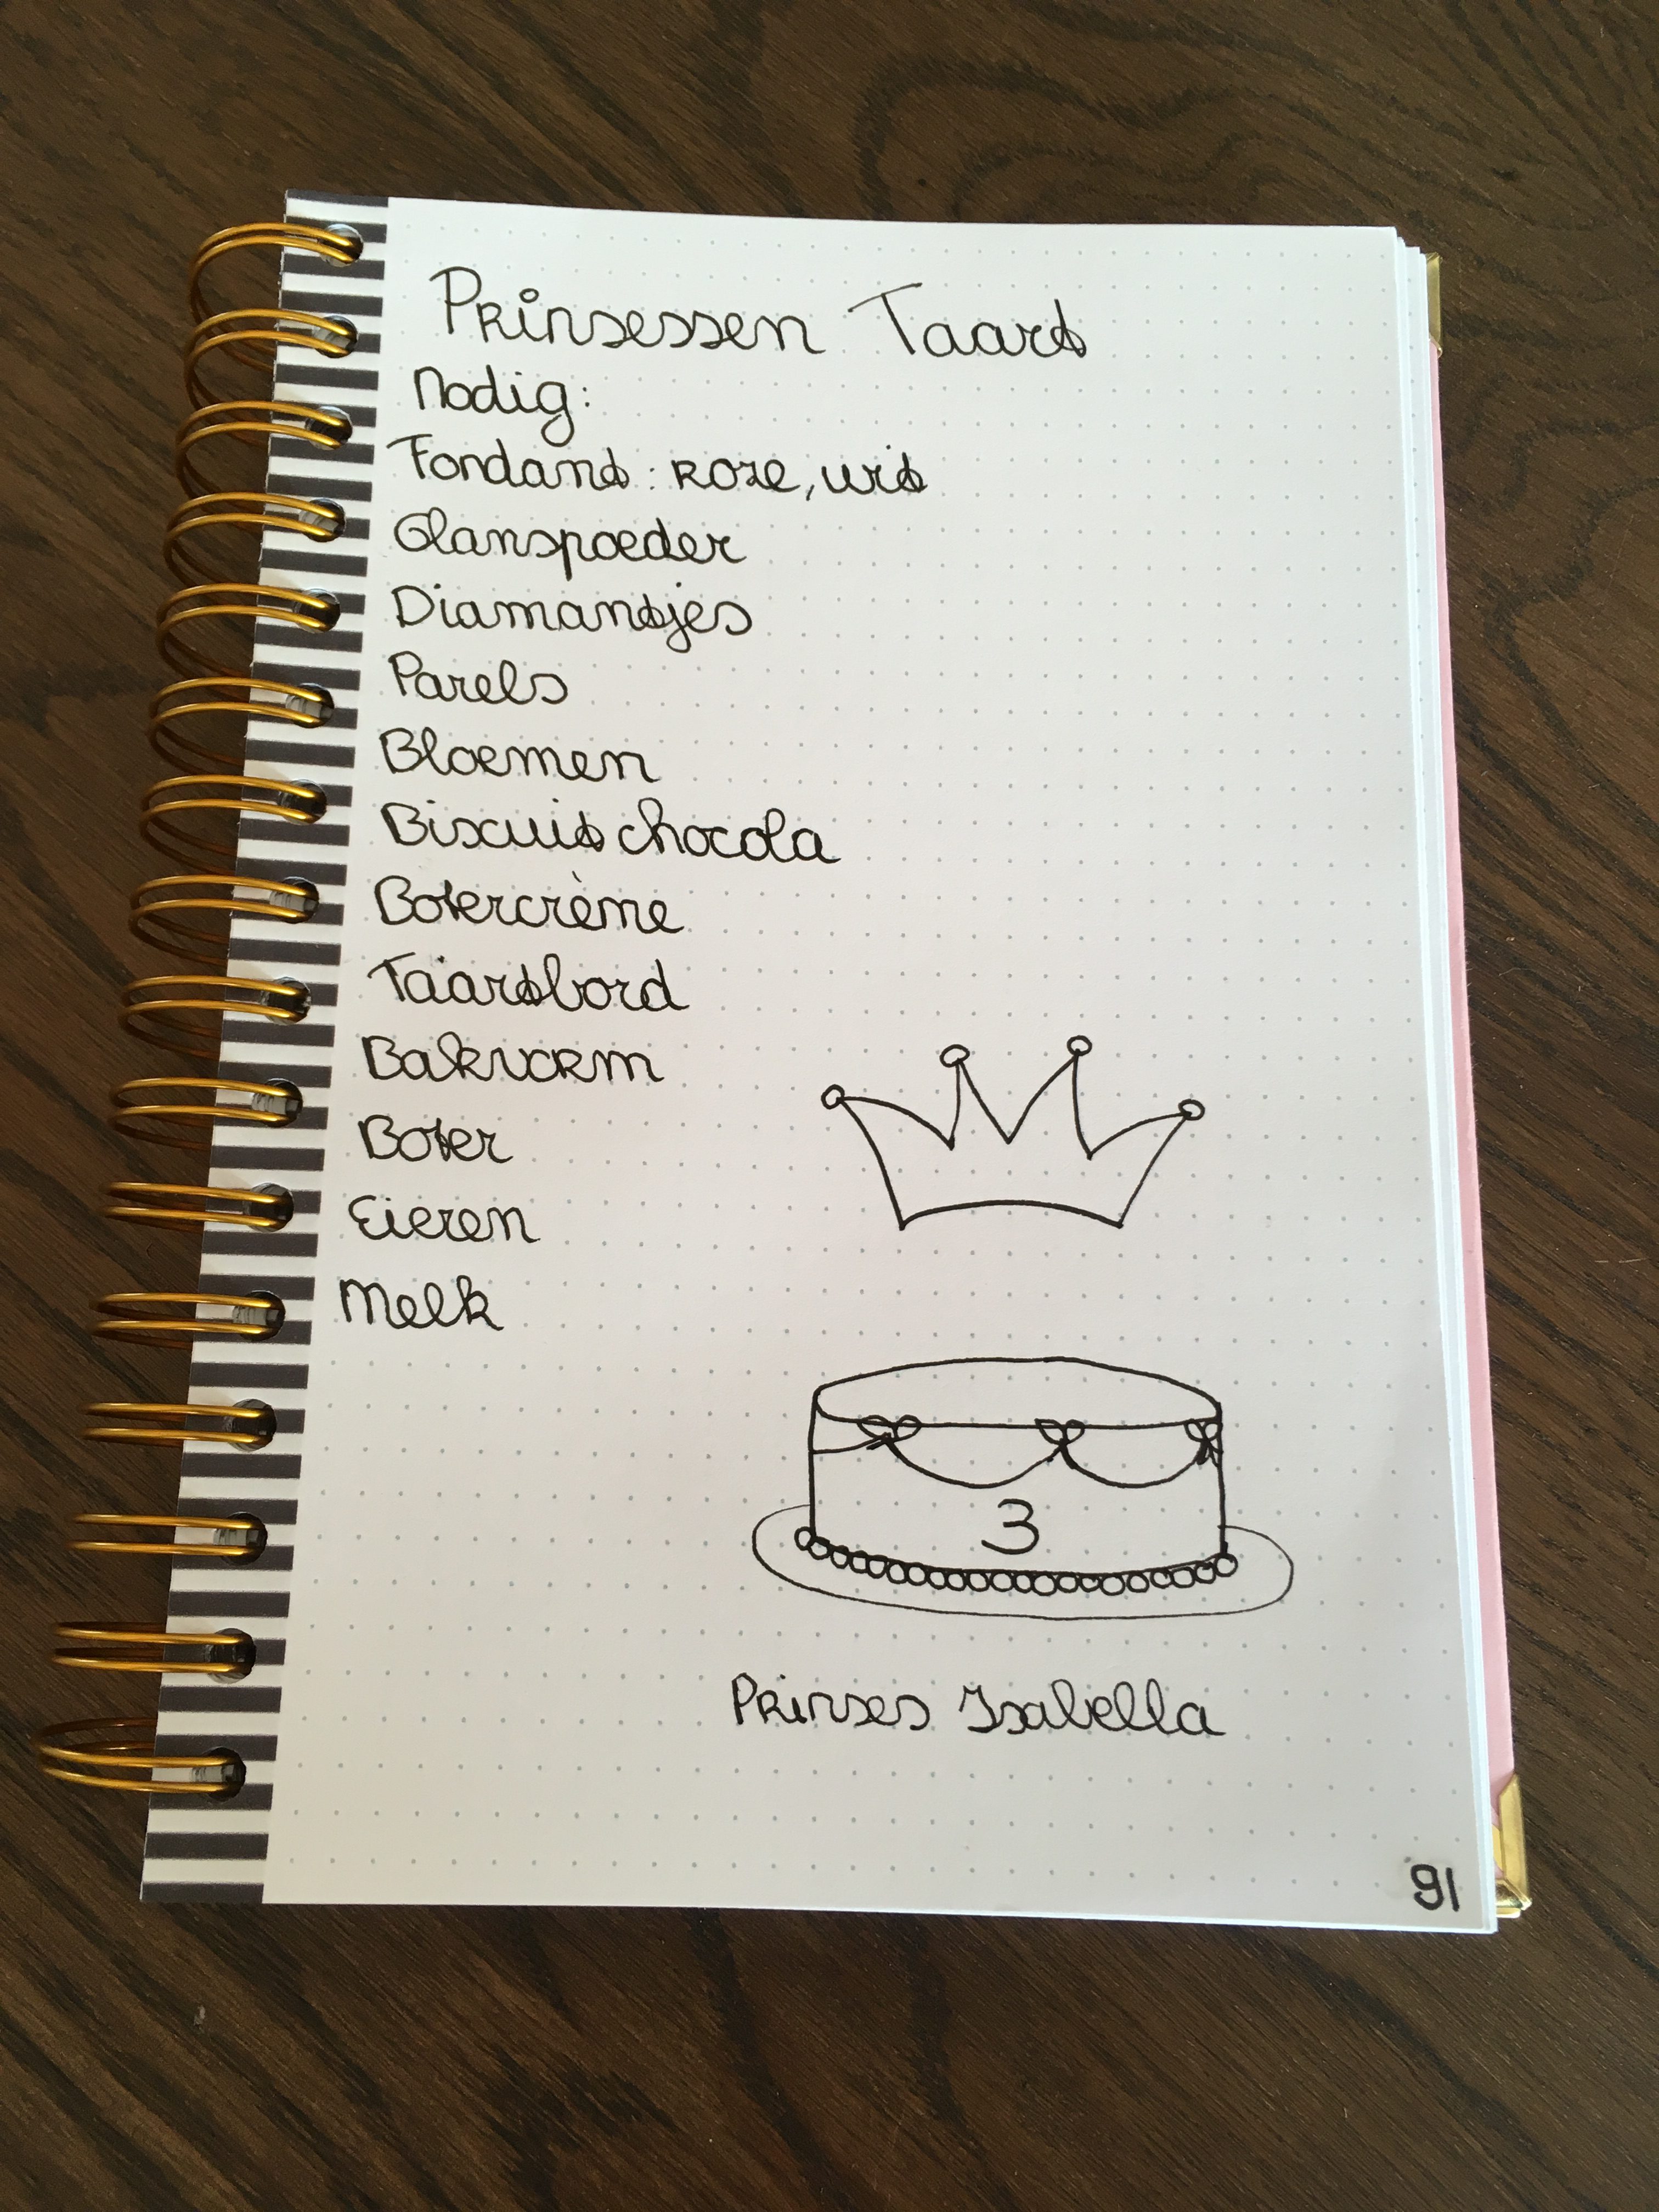 Prinsessen Taart
Nodig:
Fondant: roze, wit
Glanspoeder
Diamantjes
Parels
Bloemen
Biscuit chocola
Botercrème
Taartbord
Bakvorm
Boter
Eieren
Melk
3
Prinses Isabella
91